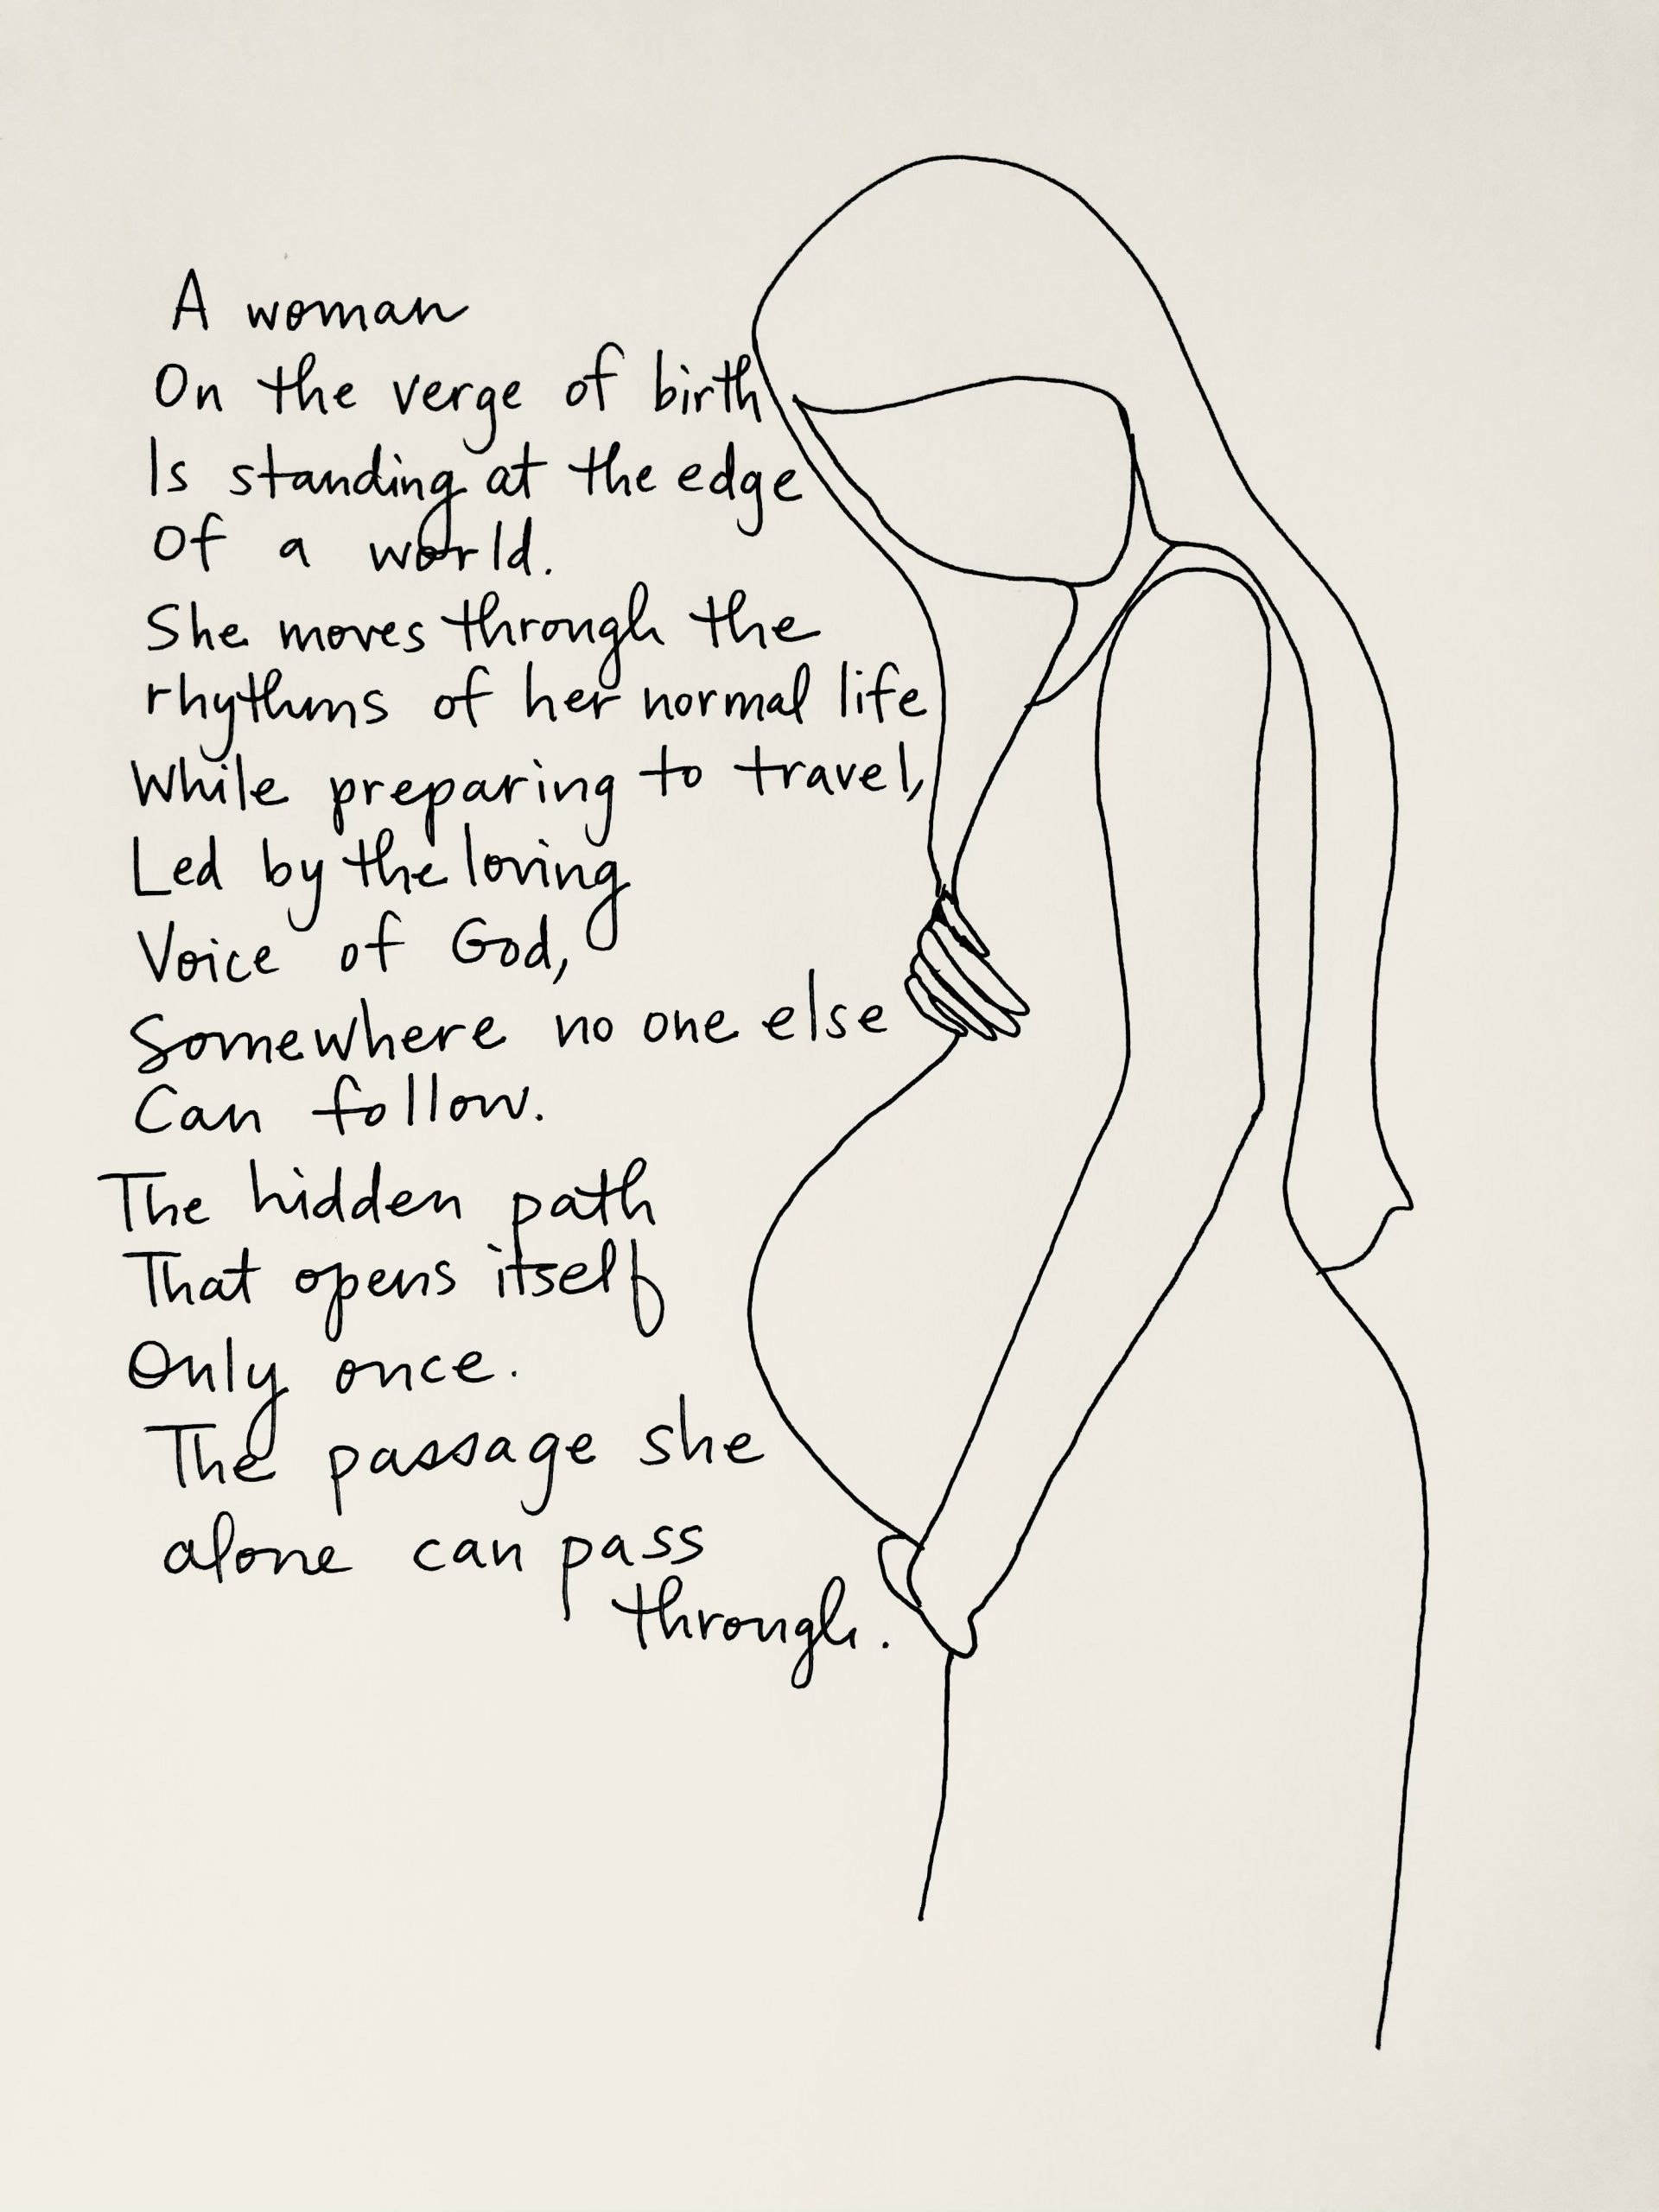 A woman
On the verge of birth
Is standing at the edge
Of a world.
She moves through the
rhythms of her normal life
While preparing to travel,
Led by the loving
Voice of God,
Somewhere no one else
Can follow.
The hidden path
That opens itself
Only once.
The passage she
alone can pass
through.